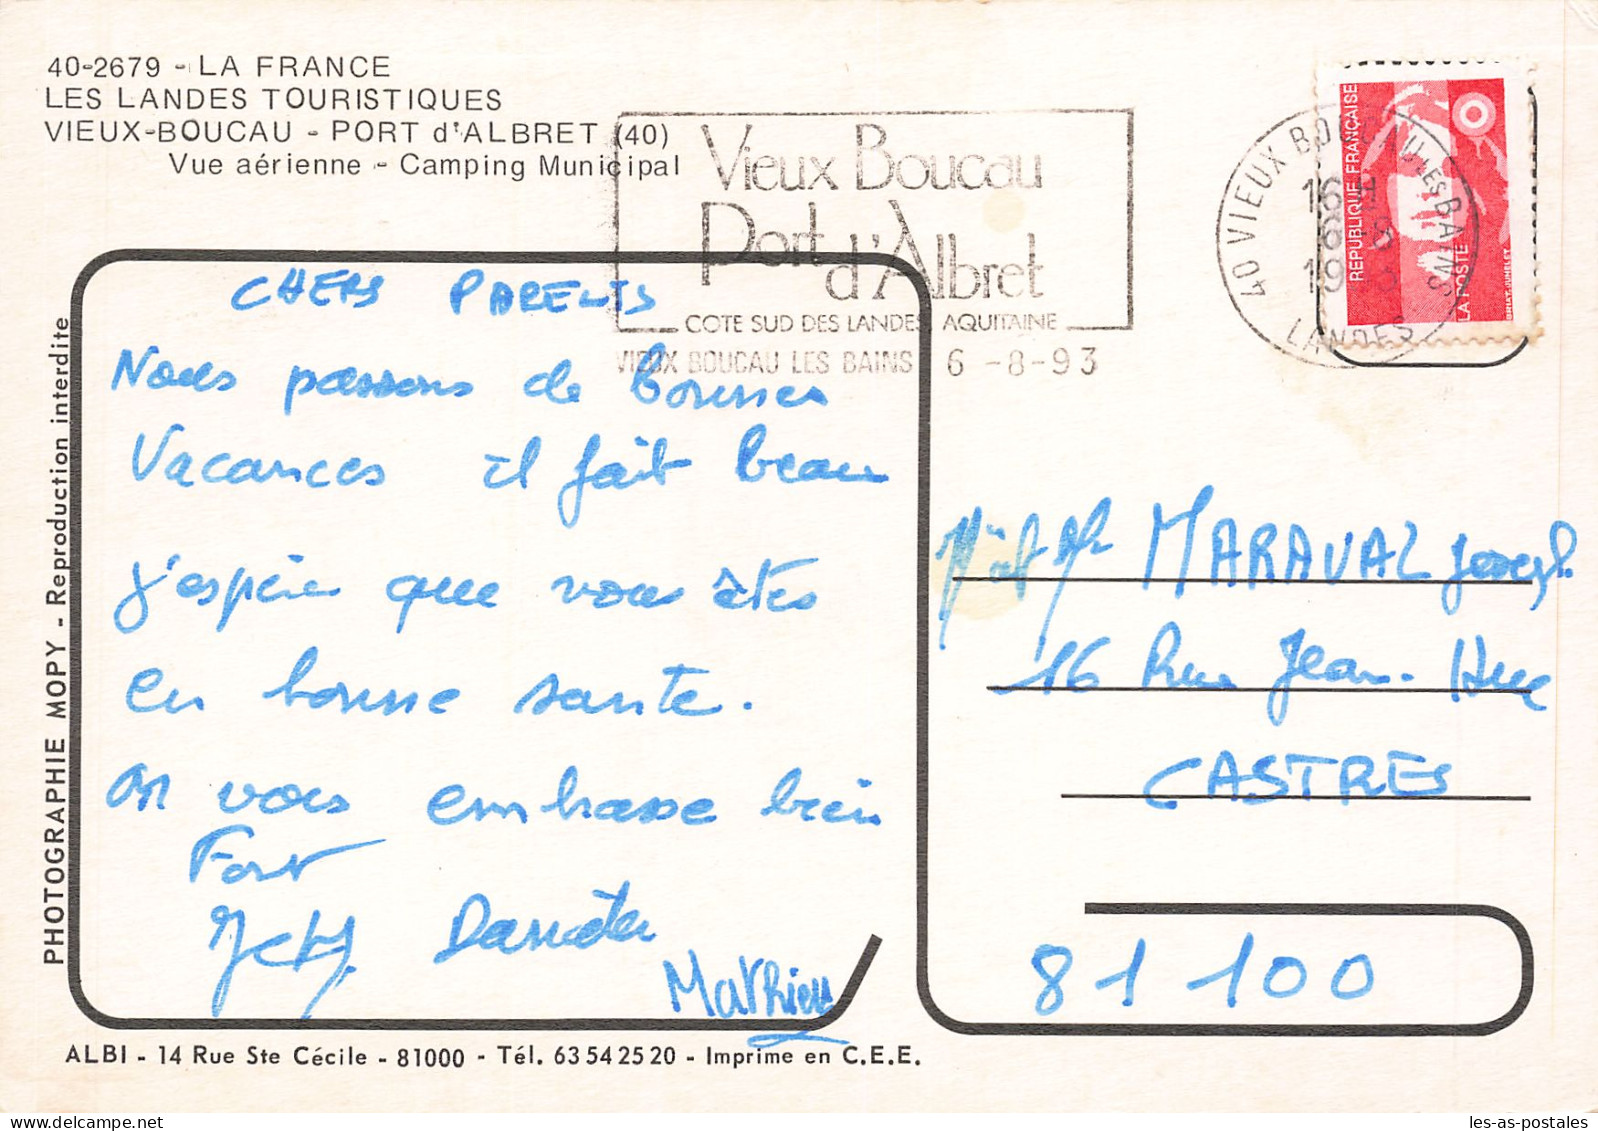 40-2679 - LA FRANCE
LES LANDES TOURISTIQUES
VIEUX-BOUCAU - PORT d'ALBRET (40)
Vue aérienne - Camping Municipal
Vieux Boucau
Port d'Albret
COTE SUD DES LANDES, AQUITAINE
VIEUX BOUCAU LES BAINS 6 -8-93
40 VIEUX BOUCAU LES BAINS
16 H
6 -8
19
LANDES
REPUBLIQUE FRANÇAISE
LA POSTE
BRIAT-JUMELET
CHERS PARENTS
Nous passons de bonnes
Vacances il fait beau
j'espère que vous êtes
en bonne sante.
on vous embrasse bien
Fort
Mathieu
MARAVAL Joseph
16 Rue Jean. Huc
CASTRES
81100
PHOTOGRAPHIE MOPY - Reproduction interdite
ALBI - 14 Rue Ste Cécile - 81000 - Tél. 63 54 25 20 - Imprime en C.E.E.
les-as-postales